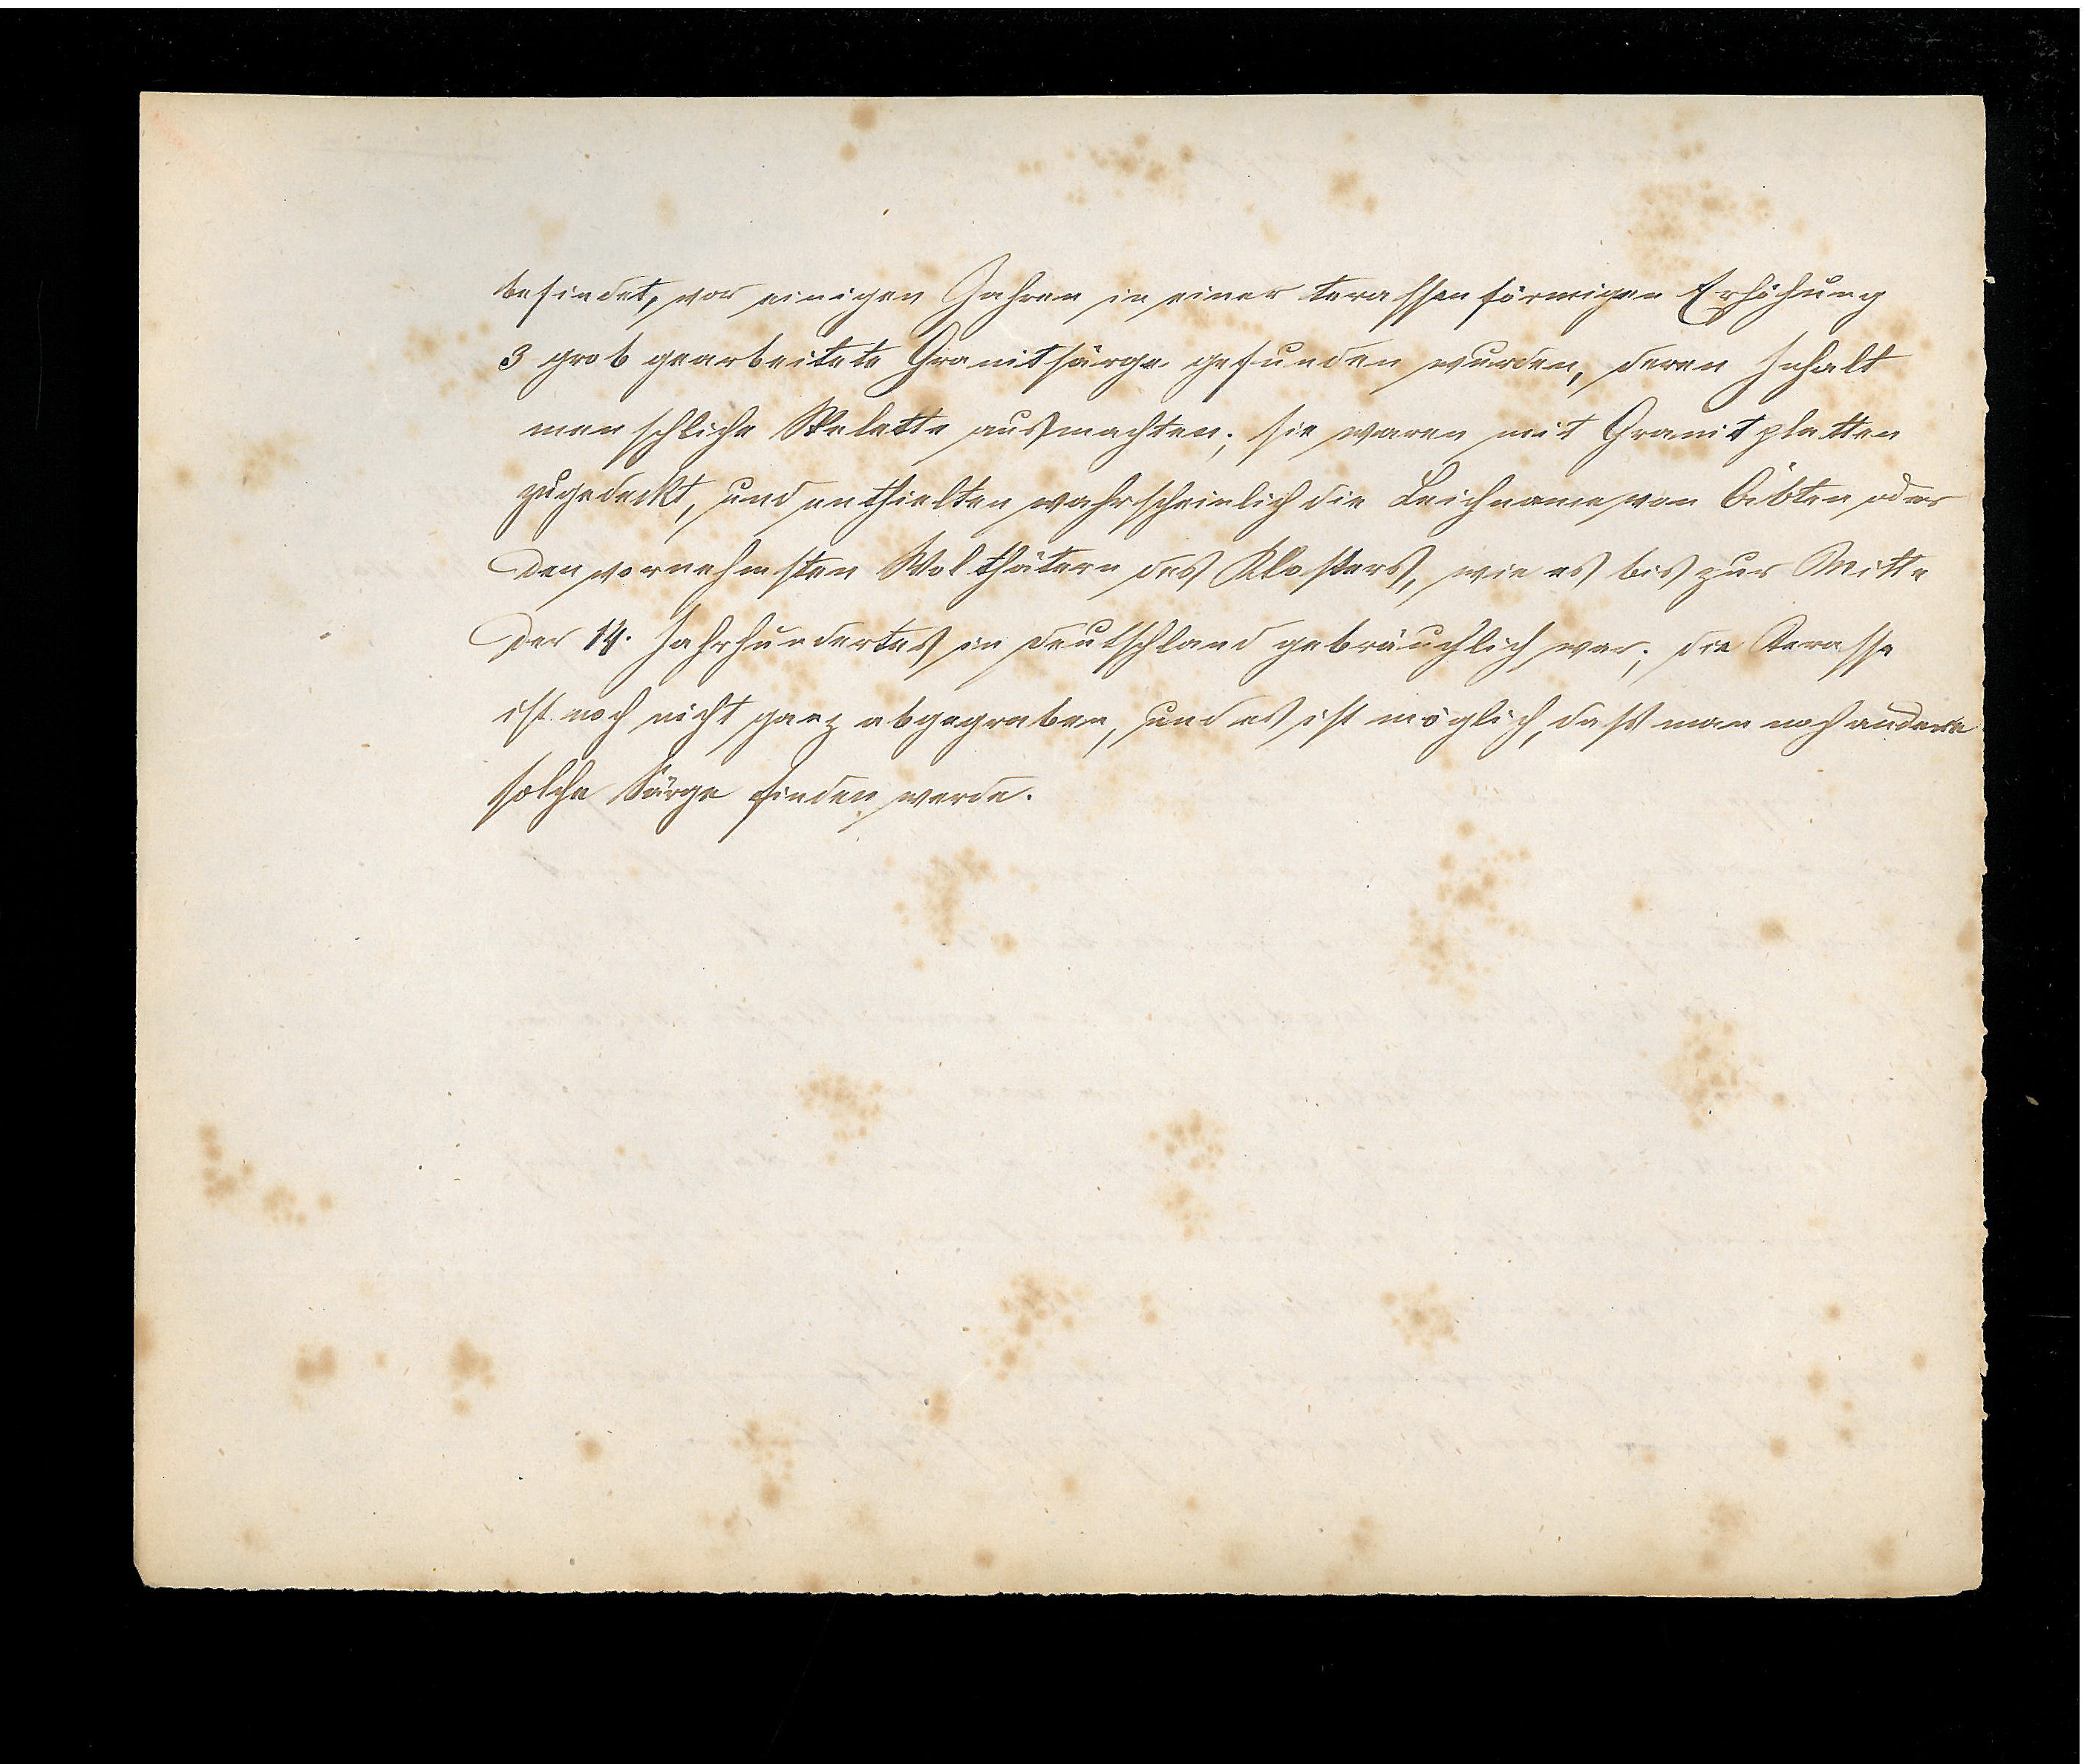 befindet, vor einigen Jahren in einer terassenförmigen Erhöhung
3 grob gearbeitete Granitsärge gefunden wurden, deren Inhalt
menschliche Skelette ausmachten; sie waren mit Granitplatten
zugedeckt, und enthielten wahrscheinlich die Leichname von Äbten oder
den vornehmsten Wolthätern des Klosters, wie es bis zur Mitte
des 14. Jahrhundertes in Deutschland gebräuchlich war; die Terasse
ist noch nicht ganz abgegraben, und es ist möglich, daß man noch andere
solche Särge finden werde.